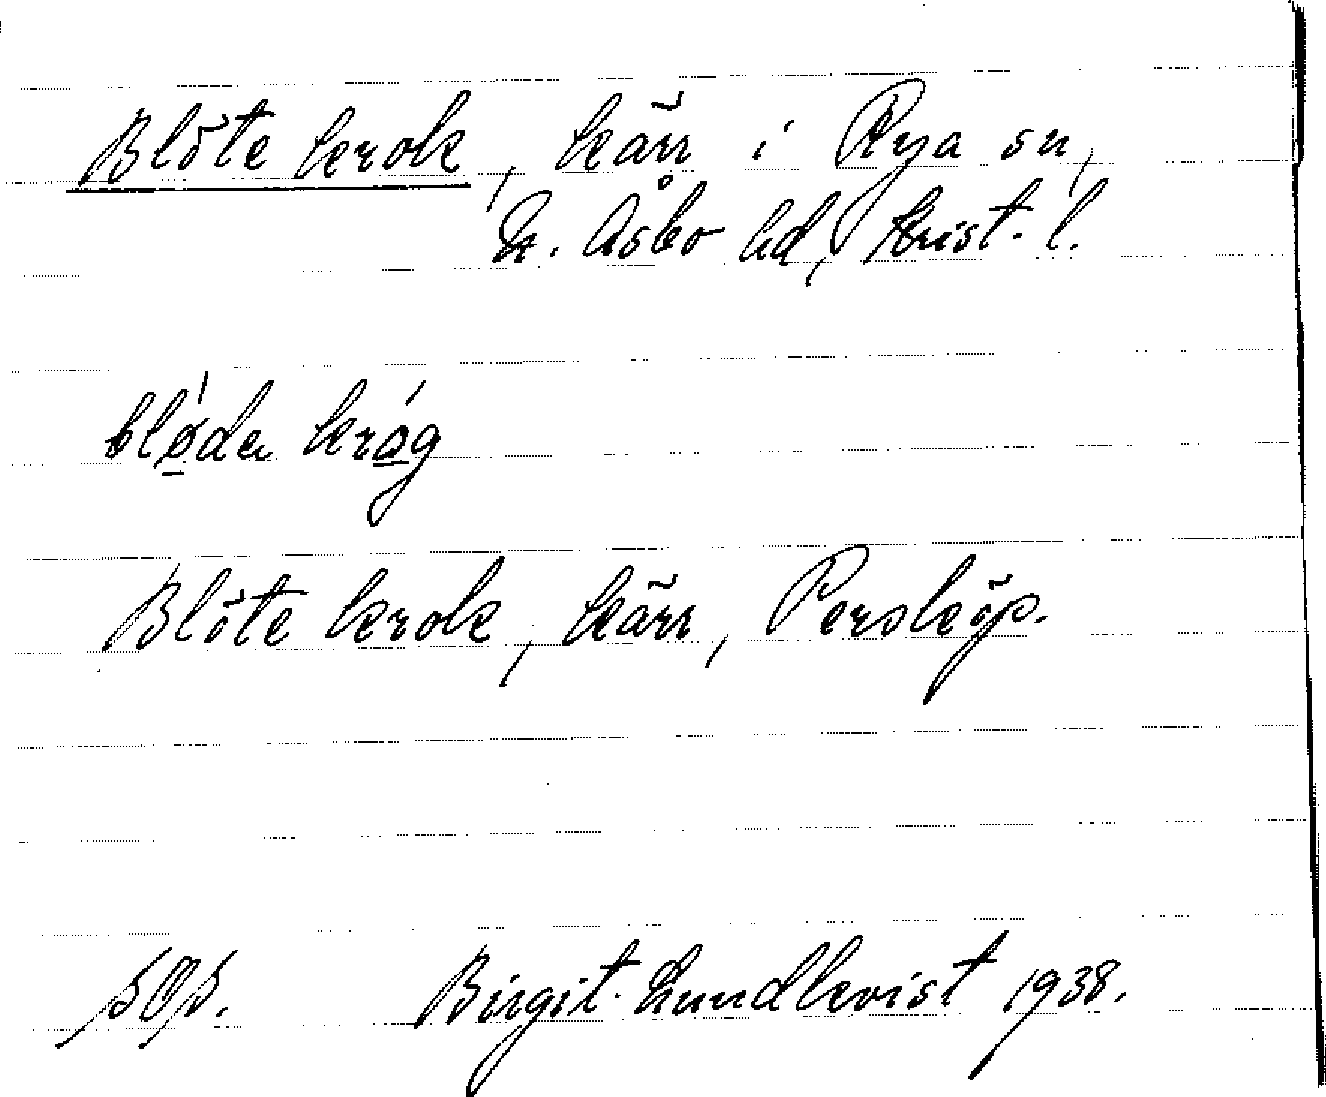 Blöte krok, kärr i Rya sn,
N. Åsbo hd, Krist. l.
blǿ̱da kråg
Blöte krok, kärr, Persköp.
Birgit Lundkvist 1938.